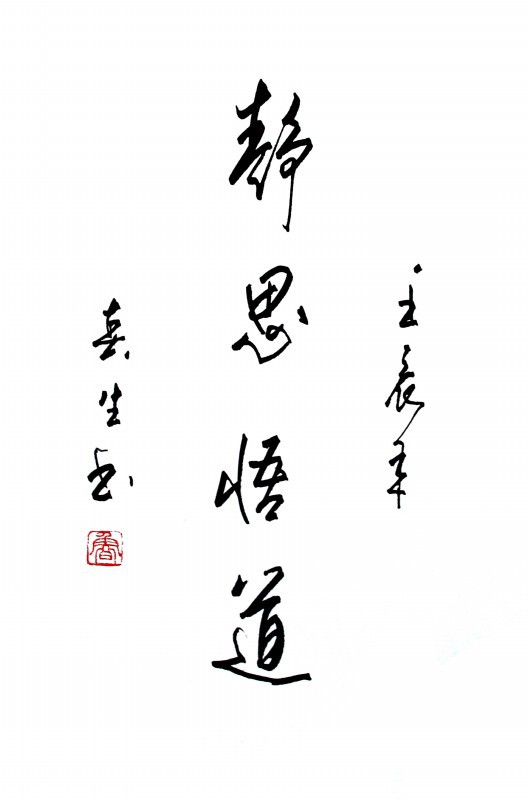 壬辰年
静思悟道
喜生书